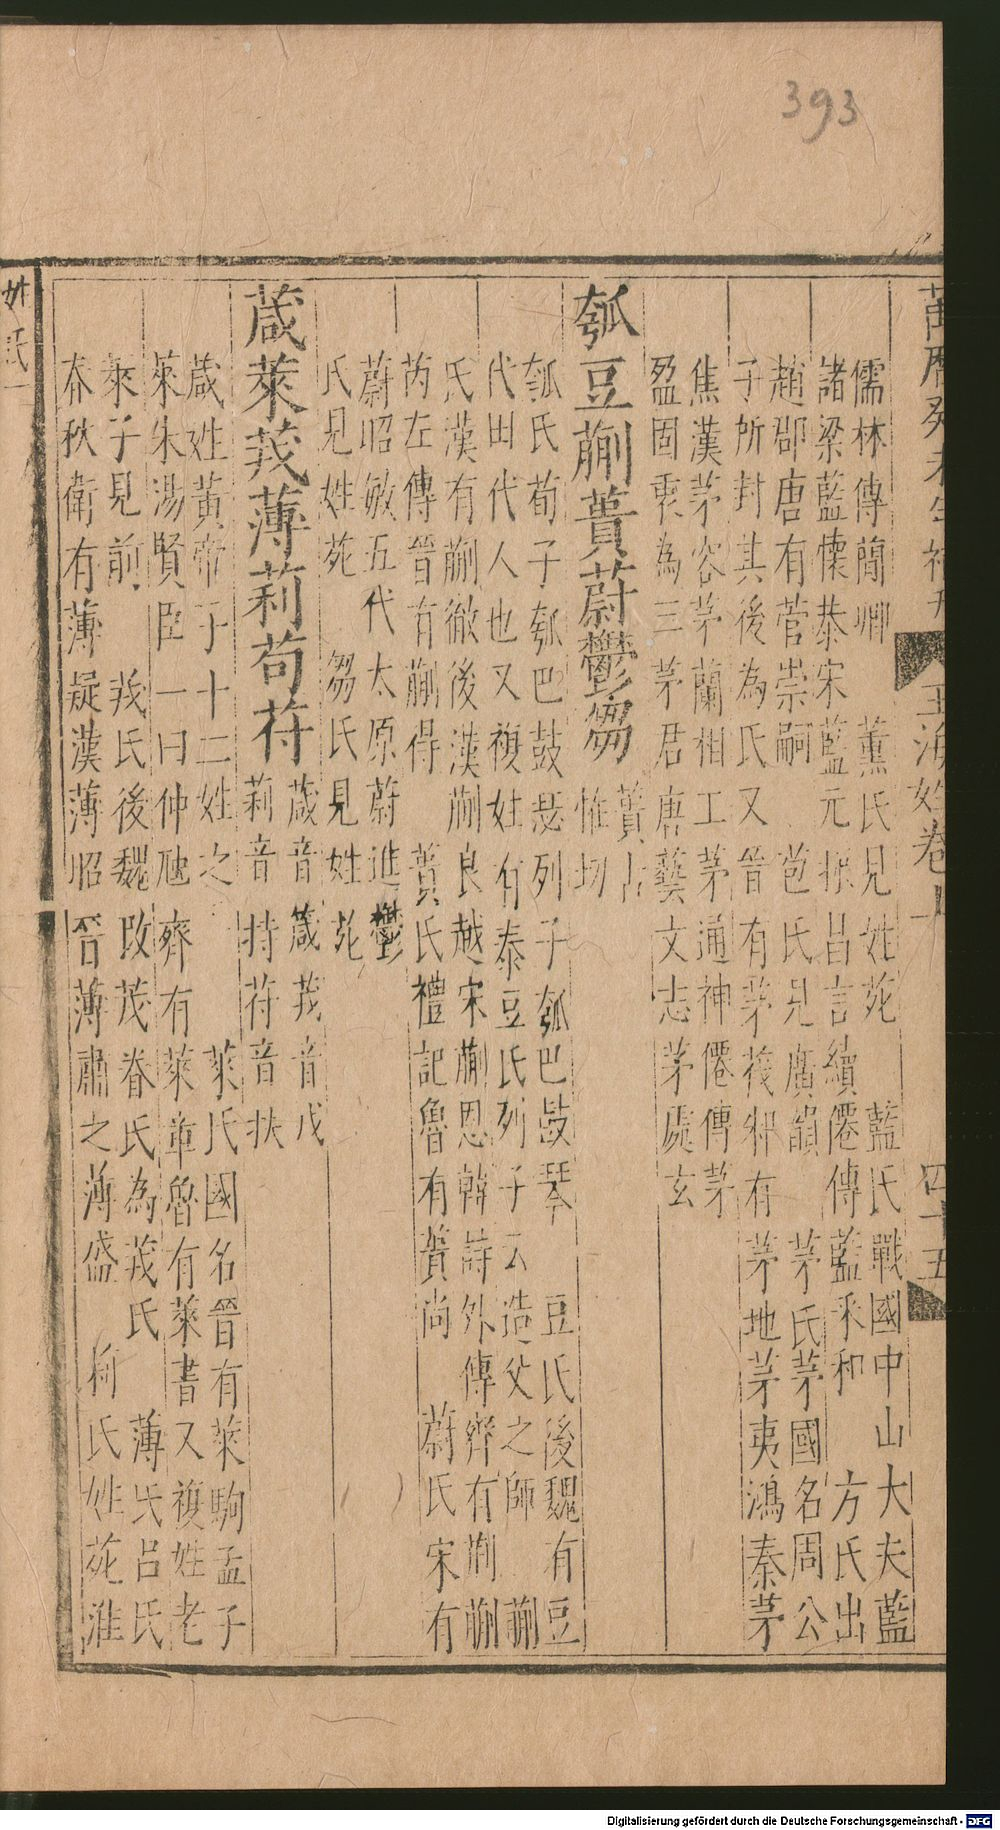 393
萬曆癸未年補刊 玉海姓卷 四十五
儒林傳蘭卿 薰氏見姓苑 藍氏戰國中山大夫藍
諸梁藍懷恭宋藍元振呂言續僊傳藍釆和 方氏出
趙郡唐有菅崇嗣 芭氏見廣韻 茅氏茅國名周公
子所封其後為氏又晉有茅筏邾有茅地茅夷鴻秦茅
焦漢茅容茅蘭相工茅通神僊傳茅
盈固衷為三茅君唐藝文志茅處玄
瓠豆蒯蕢蔚鬱芻 蕢
惟切
瓠氏荀子瓠巴鼓瑟列子瓠巴鼓琴 豆氏後魏有豆
代田代人也又複姓有泰豆氏列子云造父之師 蒯
氏漢有蒯徹後漢蒯良越宋蒯恩韓詩外傳齊有蒯蒯
芮左傳晉有蒯得 蕢氏禮記魯有蕢尚 蔚氏宋有
蔚昭敏五代太原蔚進鬱
氏見姓苑 芻氏見姓苑
葴萊茙薄莉苟苻 葴音箴茙音戊
莉音持苻音扶
葴姓黃帝子十二姓之 萊氏國名晉有萊駒孟子
萊朱湯賢臣一曰仲虺齊有萊章魯有萊書又複姓老
萊子見前 茙氏後魏改茂眷氏為茙氏 薄氏呂氏
春秋衛有薄疑漢薄昭晉薄肅之薄盛 莉氏姓苑淮
姓氏一
Digitalisierung gefördert durch die Deutsche Forschungsgemeinschaft - DFG